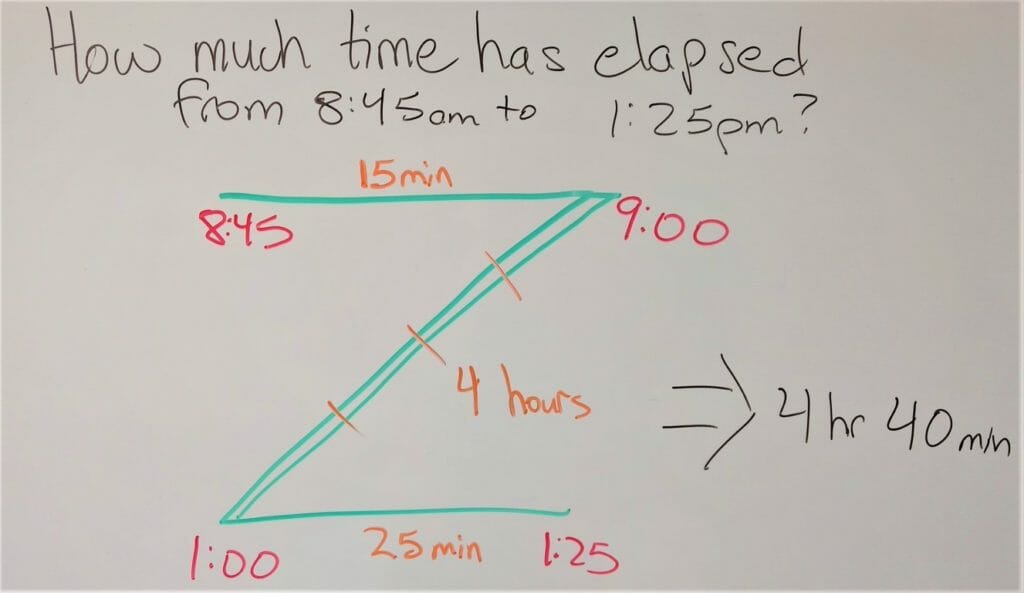 How much time has elapsed
from 8:45am to 1:25pm?
15min
8:45
9:00
4 hours
⇒ 4 hr 40 min
1:00
25 min
1:25